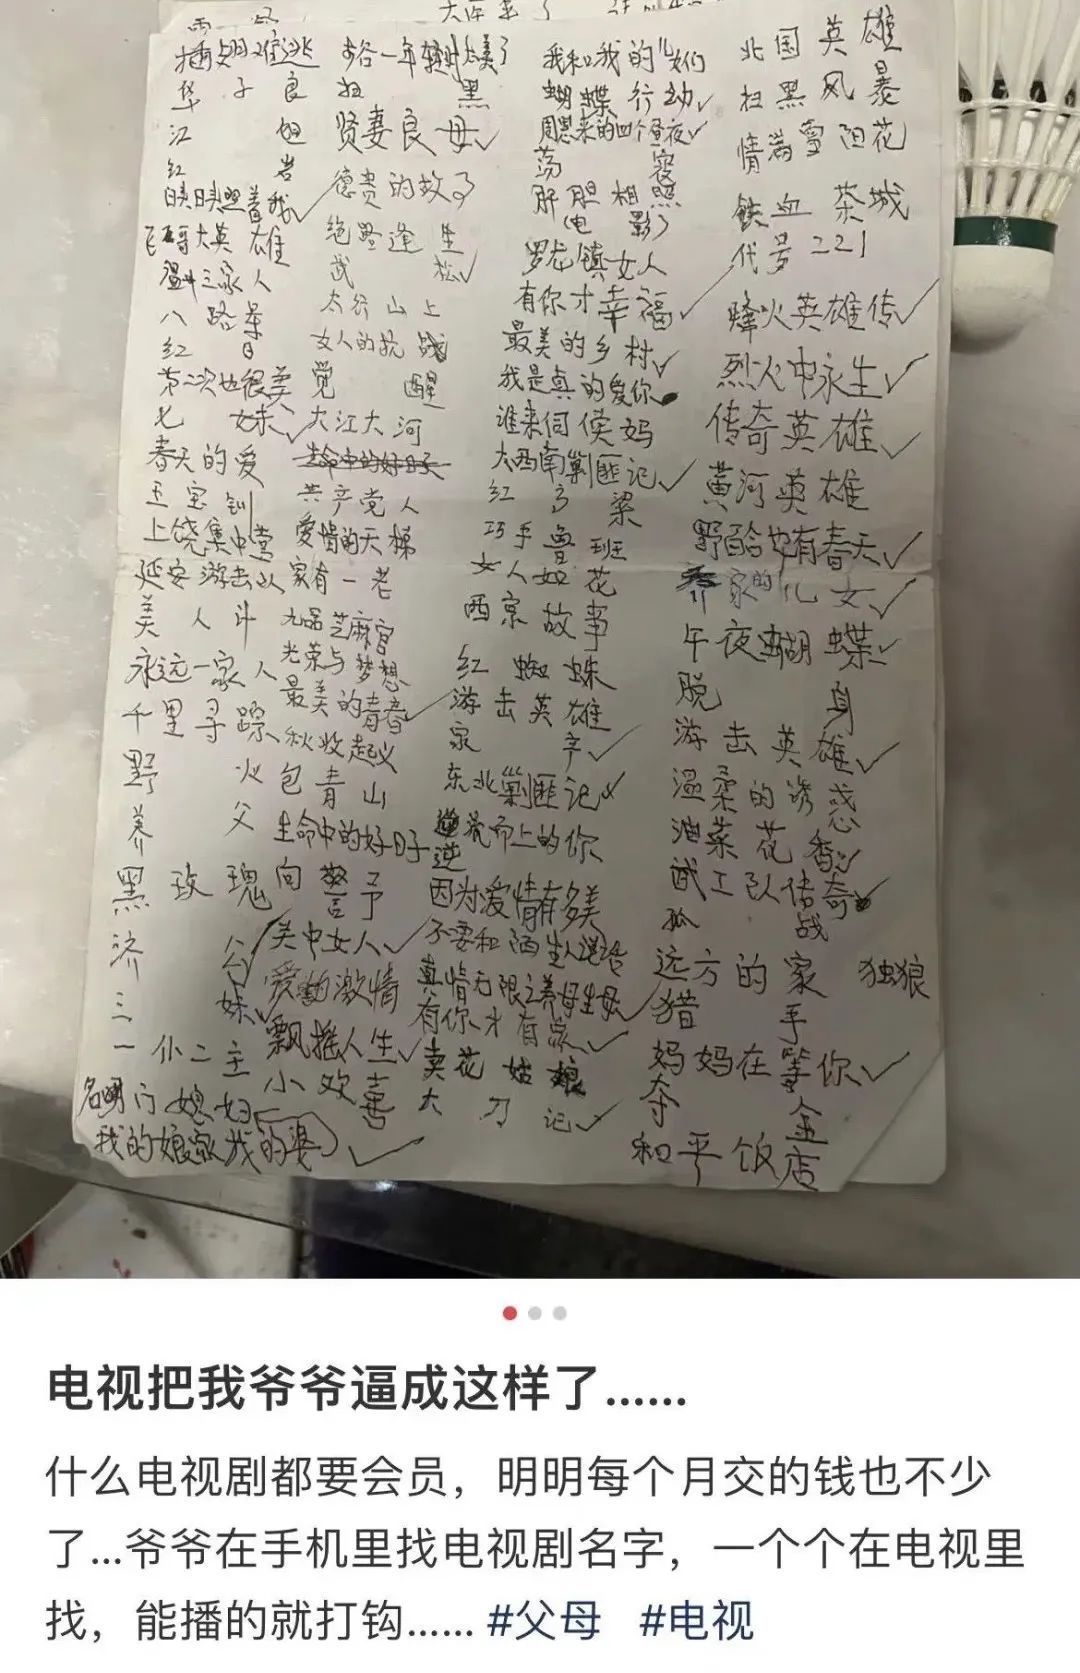 插翅难逃
华子良
江姐
红岩
映映照着我
飞哥大英雄
温州三家人
八路军
红日
第二次也很美
七妹
春天的爱
王宝钏
上饶集中营
延安游击队
美人计
永远一家人
千里寻踪
野火
养父
黑玫瑰
济公
三妹
一仆二主
名门媳妇
我的娘家我的婆
扫黑
贤妻良母
德贵的故事
绝路逢生
武松
太行山上
女人的抗战
觉醒
大江大河
生命中的好日子
共产党人
爱情的天梯
家有一老
九品芝麻官
光荣与梦想
最美的青春
秋收起义
包青山
生命中的好日子
向警予
关中女人
爱的激情
飘摇人生
小欢喜
我和我的儿女们
蝴蝶行动
周恩来的四个昼夜
荡寇
肝胆相照
电影
罗龙镇女人
有你才幸福
最美的乡村
我是真的爱你
谁来伺候妈
大西南剿匪记
红高粱
巧手鲁班
女人如花
西京故事
红蜘蛛
游击英雄
家产
东北剿匪记
逆流而上的你
因为爱情有多美
不要和陌生人说话
真情无限之养母生母
有你才有家
卖花姑娘
大刀记
北国英雄
扫黑风暴
情满雪阳花
铁血茶城
代号221
烽火英雄传
烈火中永生
传奇英雄
黄河英雄
野百合也有春天
乔家的儿女
午夜蝴蝶
脱身
游击英雄
温柔的诱惑
油菜花香
武工队传奇
孤战
远方的家
独狼
猎手
妈妈在等你
夺金
和平饭店
电视把我爷爷逼成这样了......
什么电视剧都要会员，明明每个月交的钱也不少
了...爷爷在手机里找电视剧名字，一个个在电视里
找，能播的就打钩...... #父母 #电视